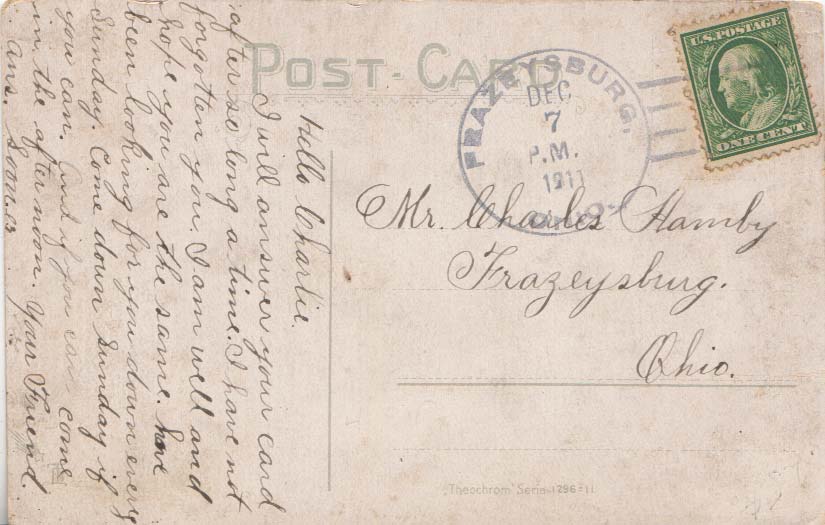 POST-CARD
FRAZEYSBURG,
DEC
7
P.M.
1911
OHIO.
U.S. POSTAGE
ONE CENT
Hello Charlie.
I will answer your card
after so long a time. I have not
forgotten you. I am well and
hope you are the same. have
been looking for you down every
Sunday. Come down Sunday if
you can. and if you can come
in the after noon. Your Friend
Ans. Soon.
Mr. Charles Hamby
Frazeysburg.
Ohio.
"Theochrom" Serie 1296-11